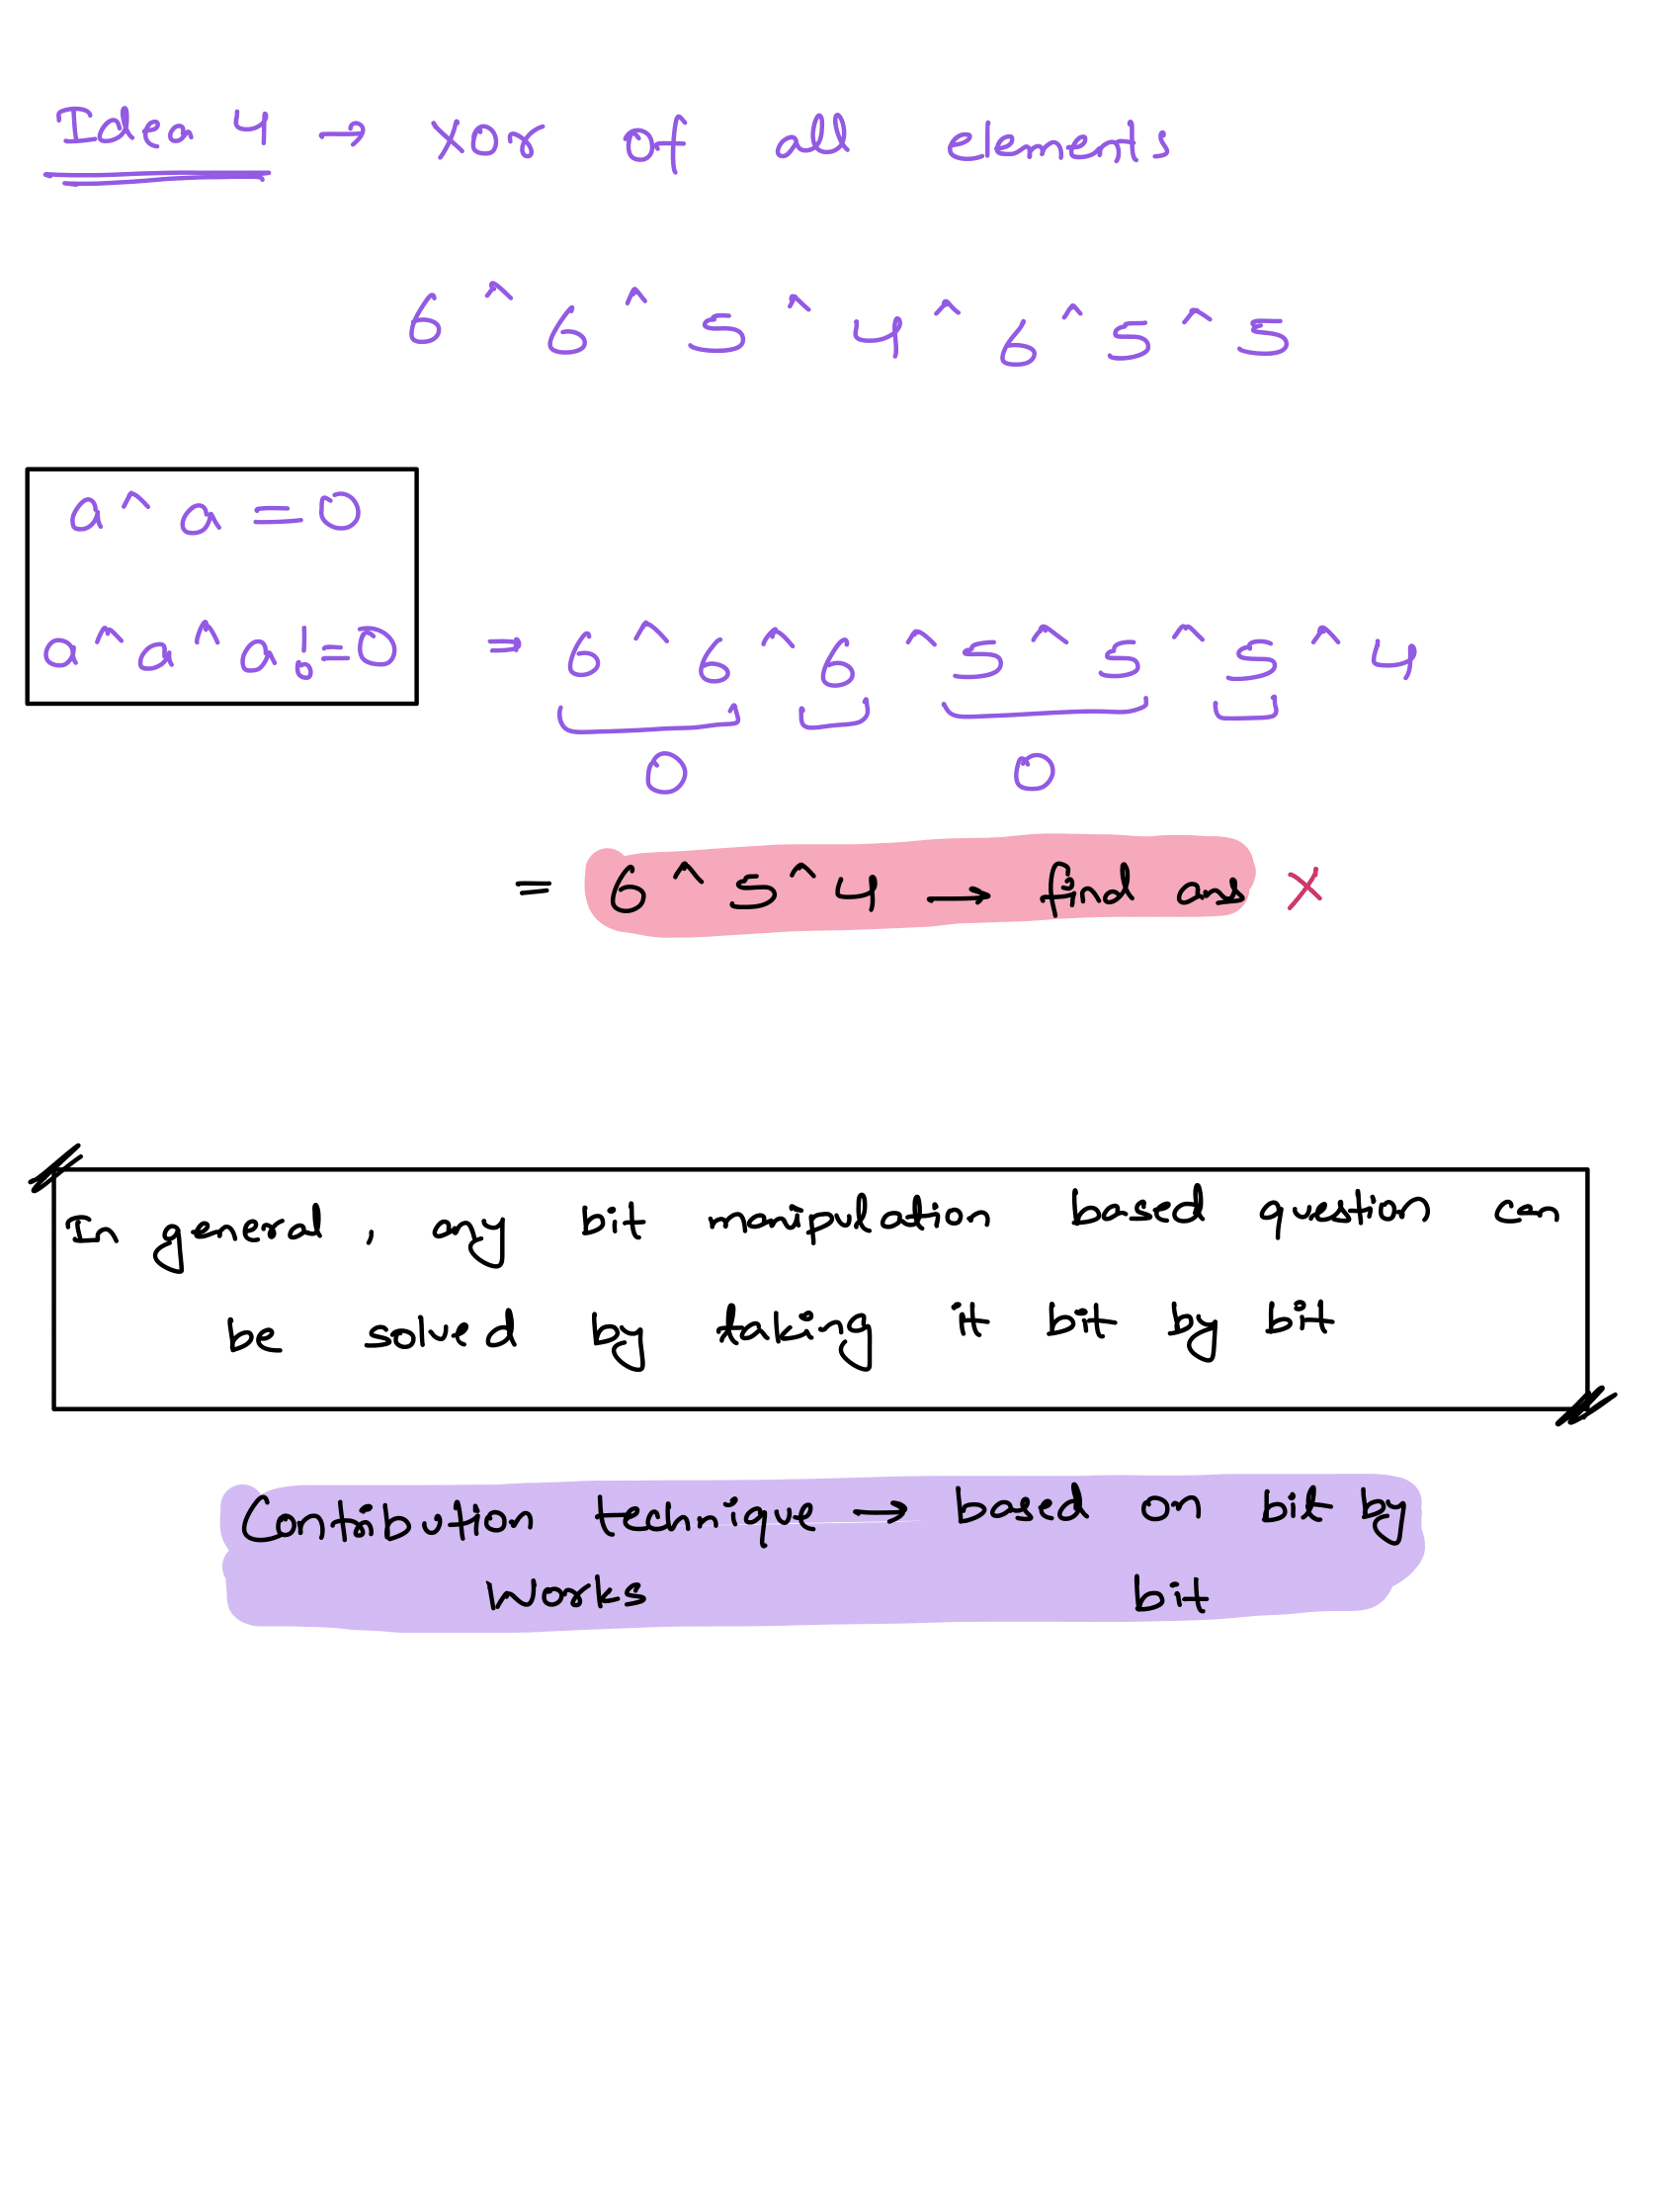 Idea 4 → XOR of all elements
6 ^ 6 ^ 5 ^ 4 ^ 6 ^ 5 ^ 5
a ^ a = 0
a ^ a ^ a != 0
⇒ 6 ^ 6 ^ 6 ^ 5 ^ 5 ^ 5 ^ 4
0 0
= 6 ^ 5 ^ 4 → find ans ×
In general, any bit manipulation based question can
be solved by taking it bit by bit
Contribution technique → based on bit by
works bit